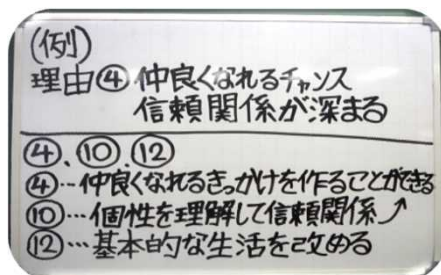 (例)
理由④ 仲良くなれるチャンス
信頼関係が深まる
④、⑩、⑫
④…仲良くなれるきっかけを作ることができる
⑩…個性を理解して信頼関係↗
⑫…基本的な生活を改める